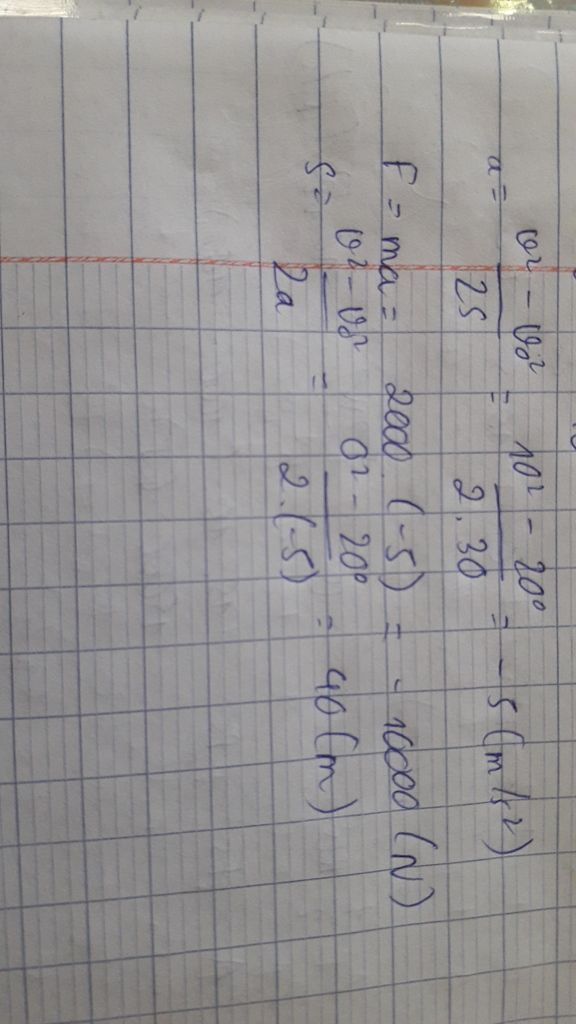 a = v² - v₀² / 2s = 10² - 20⁰ / 2.30 = - 5 (m/s²)
F = ma = 2000.(-5) = - 10000 (N)
s = v² - v₀² / 2a = 0² - 20⁰ / 2.(-5) = 40 (m)